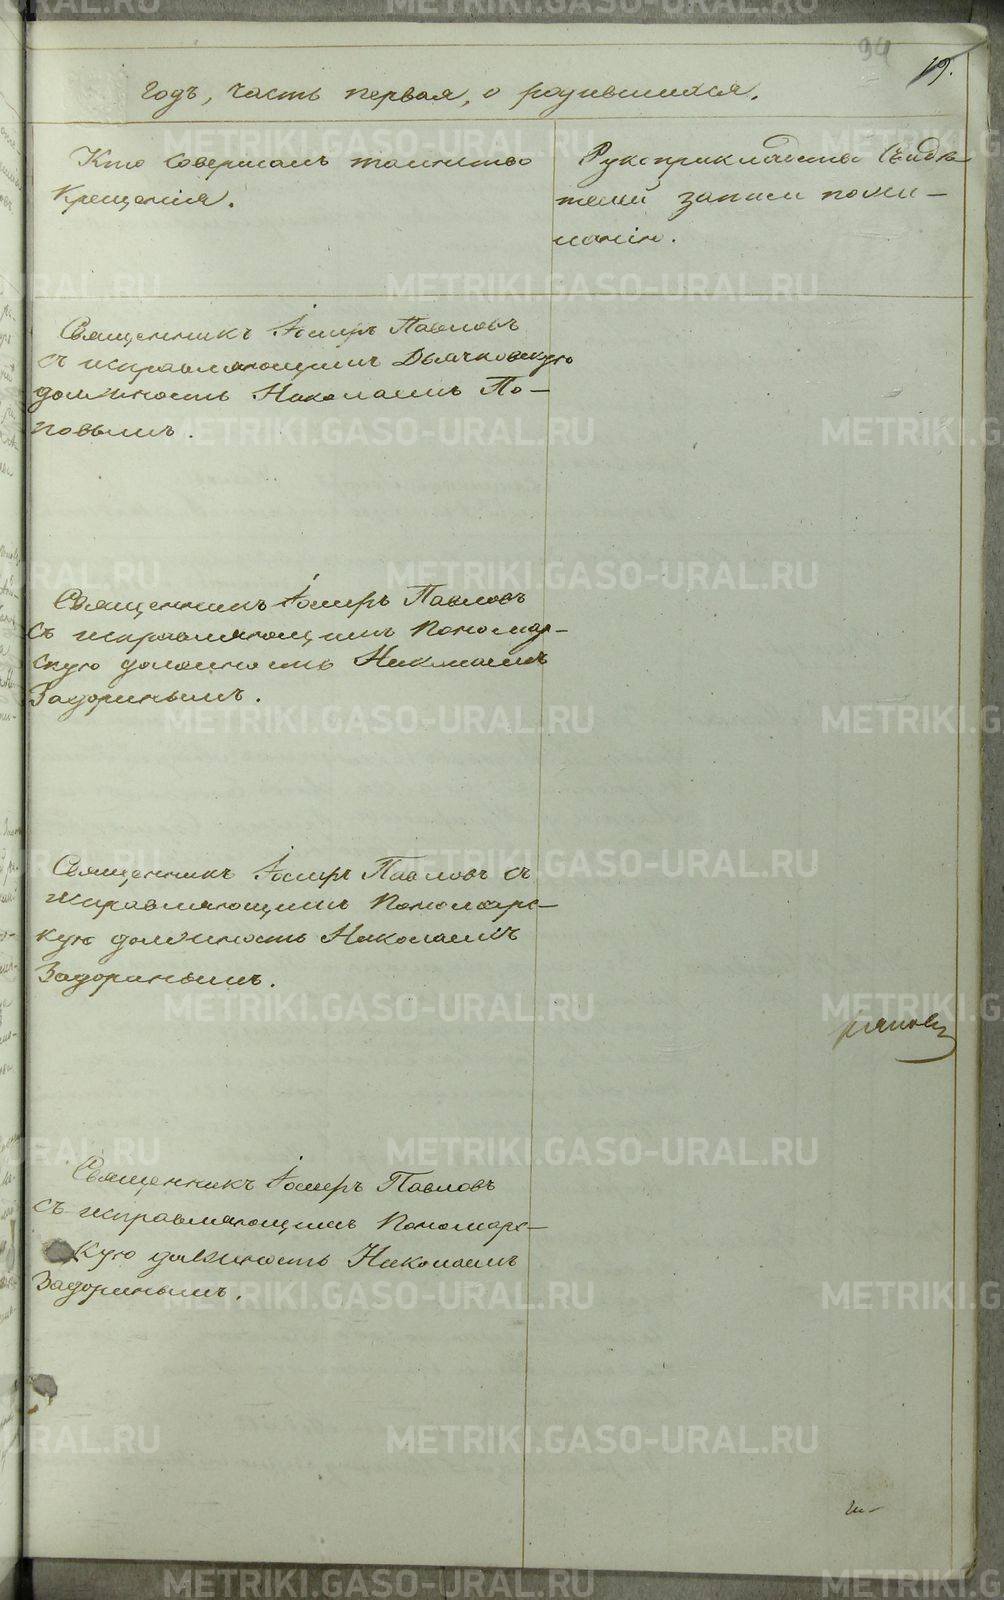 94
19.
Годъ, часть первая, о родившихся.
Кто совершалъ таинство
Крещенія.
Рукоприкладство свидѣ-
телей записи по же-
ланію.
Священникъ Іосифъ Павловъ
съ исправляющимъ Дьячковскую
должность Николаемъ По-
повымъ.
Священникъ Іосифъ Павловъ
съ исправляющимъ Пономар-
скую должность Николаемъ
Задоринымъ.
Священникъ Іосифъ Павловъ съ
исправляющимъ Пономарс-
кую должность Николаемъ
Задоринымъ.
Священникъ Іосифъ Павловъ
съ исправляющимъ Пономарс-
кую должность Николаемъ
Задоринымъ.
METRIKI.GASO-URAL.RU